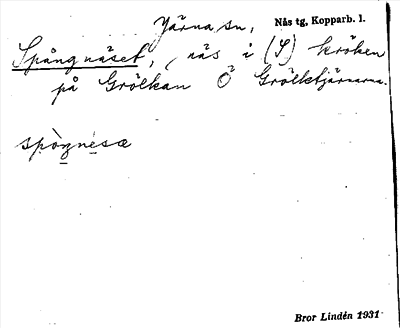 Järna sn, Nås tg, Kopparb. l.
Spångnäset, näs i (S) kröken
på Grölkan Ö Grölktjärnarna.
spòŋnésæ
Bror Lindén 1931